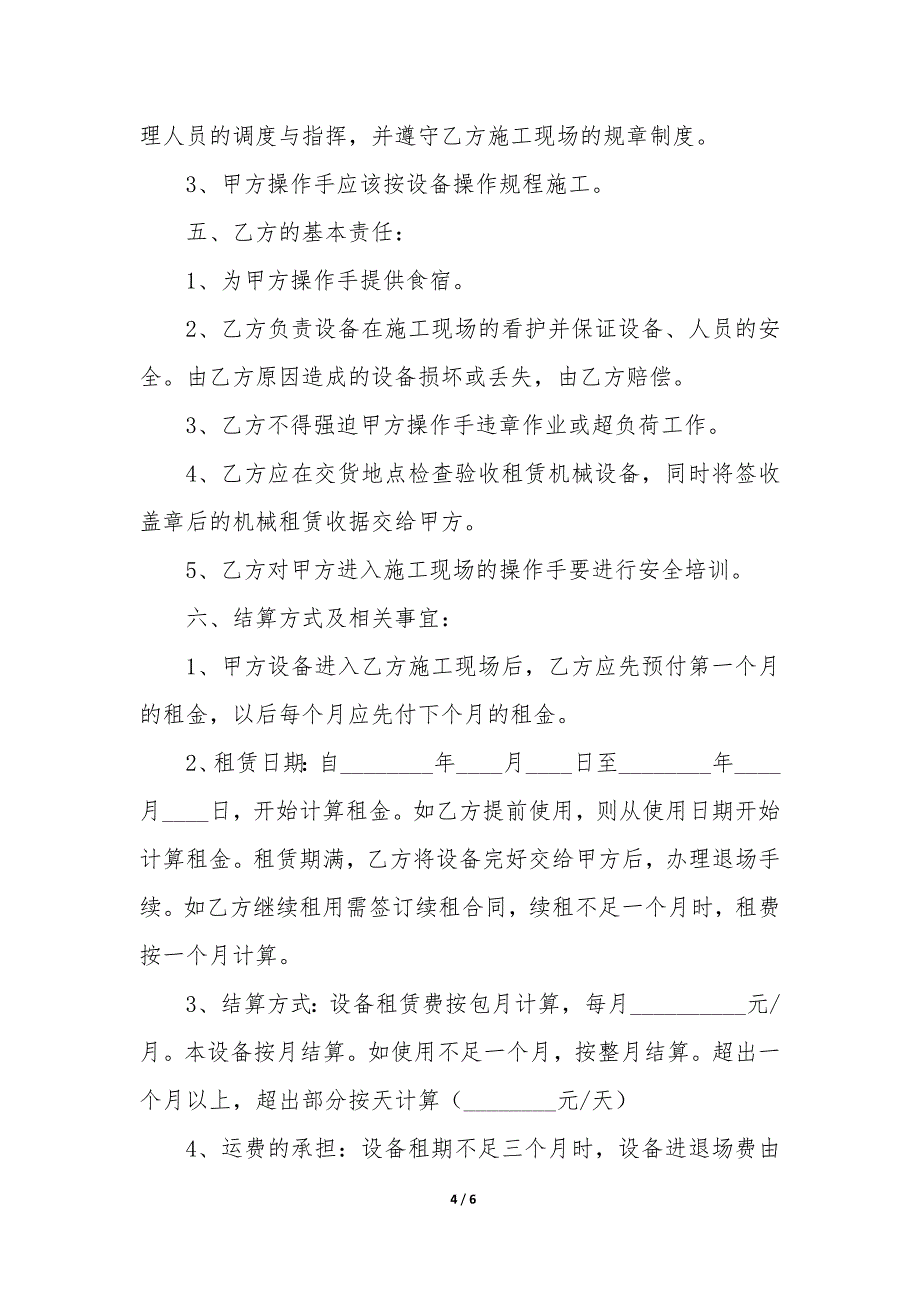 理人员的调度与指挥，并遵守乙方施工现场的规章制度。
3、甲方操作手应该按设备操作规程施工。
五、乙方的基本责任：
1、为甲方操作手提供食宿。
2、乙方负责设备在施工现场的看护并保证设备、人员的安
全。由乙方原因造成的设备损坏或丢失，由乙方赔偿。
3、乙方不得强迫甲方操作手违章作业或超负荷工作。
4、乙方应在交货地点检查验收租赁机械设备，同时将签收
盖章后的机械租赁收据交给甲方。
5、乙方对甲方进入施工现场的操作手要进行安全培训。
六、结算方式及相关事宜：
1、甲方设备进入乙方施工现场后，乙方应先预付第一个月
的租金，以后每个月应先付下个月的租金。
2、租赁日期：自________年____月____日至________年____
月____日，开始计算租金。如乙方提前使用，则从使用日期开始
计算租金。租赁期满，乙方将设备完好交给甲方后，办理退场手
续。如乙方继续租用需签订续租合同，续租不足一个月时，租费
按一个月计算。
3、结算方式：设备租赁费按包月计算，每月__________元/
月。本设备按月结算。如使用不足一个月，按整月结算。超出一
个月以上，超出部分按天计算（________元/天）
4、运费的承担：设备租期不足三个月时，设备进退场费由
4 / 6